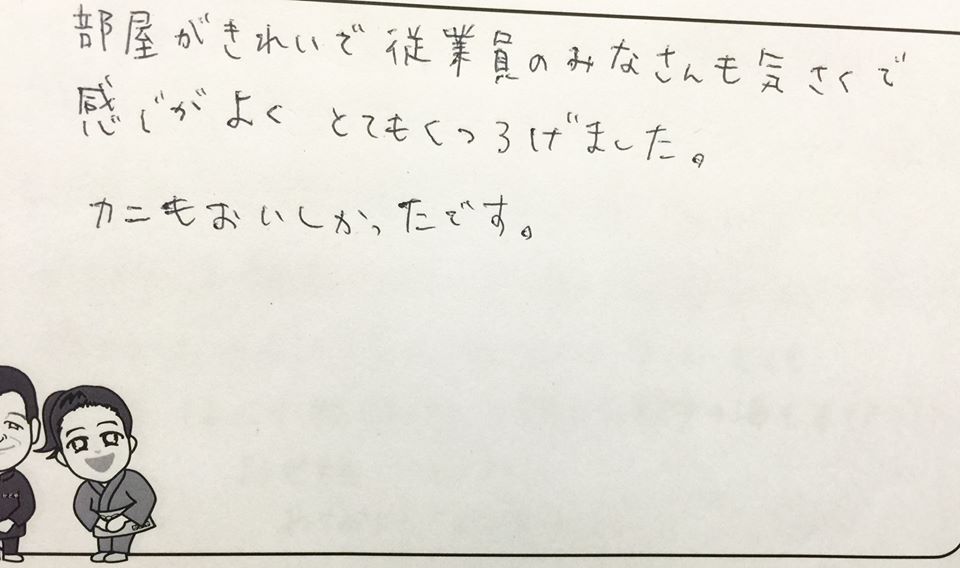 部屋がきれいで従業員のみなさんも気さくで
感じがよく とてもくつろげました。
カニもおいしかったです。